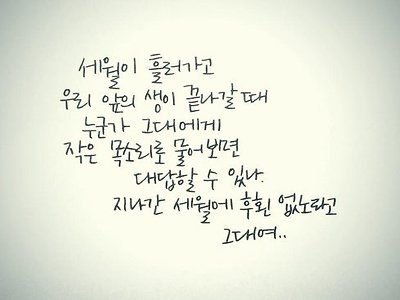 세월이 흘러가고
우리 앞의 생이 끝나갈 때
누군가 그대에게
작은 목소리로 물어보면
대답할 수 있나.
지나간 세월에 후회 없노라고
그대여..